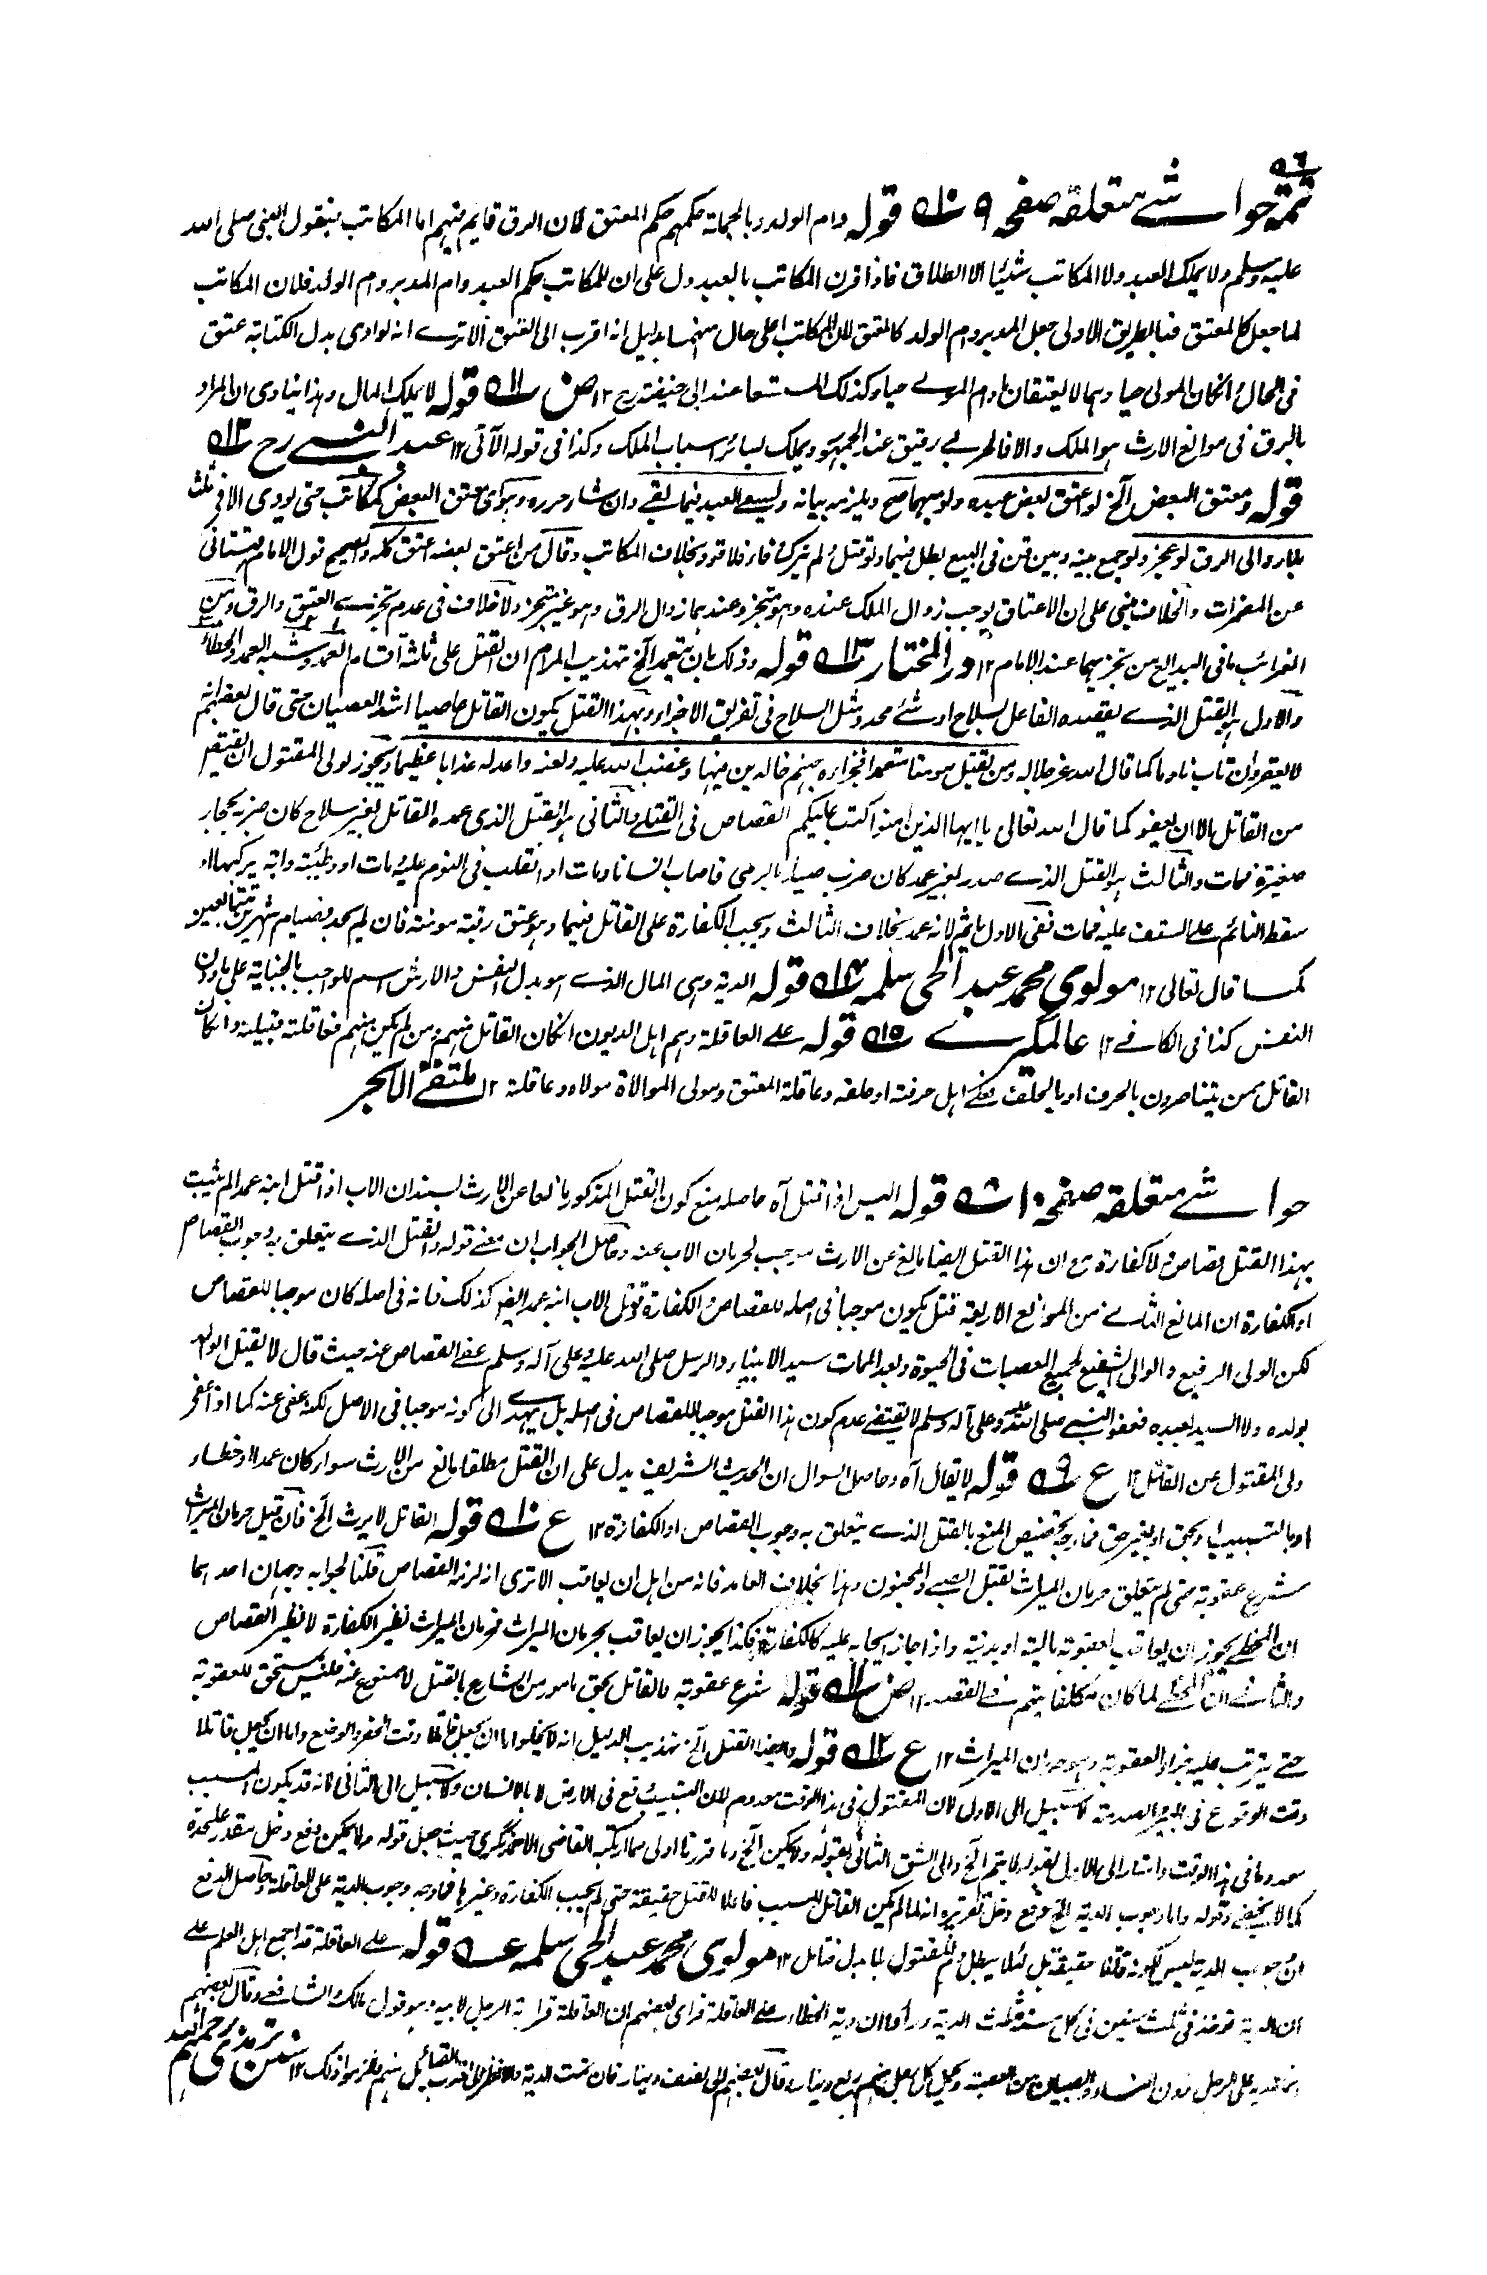 ٥٦
تتمة حواشے متعلقہ صفحہ ٩ ١٠ قولہ وام الولد وبالجملة حکمہم حکم المعتق لان الرق قایم فیہم اما المکاتب فبقول النبی صلی اللہ
علیہ وسلم ولا یملک العبد ولا المکاتب شیئا الا الطلاق فاذا قرن المکاتب بالعبد دل علی ان للمکاتب حکم العبد وام المدبر وام الولد فلان المکاتب
لما جعل کالمعتق فبالطریق الاولی جعل المدبر وام الولد کالمعتق لان المکاتب اعلی حال منہما بدلیل انہ اقرب الی العتق الا ترے انہ لو ادی بدل الکتابة عتق
فی الحال وانکان المولی حیا وہما لا یعتقان مادام المولے حیا وکذلک المستسعا عند ابی حنیفة رح ١٢ ض ١١ قولہ لا یملک المال وہذا ینادی ان المراد
بالرق فی موانع الارث ہو الملک والا فالحربے رقیق عند الجمہور ویملک بسائر اسباب الملک وکذا فی قولہ الآتی ١٢ عبد النبے رح ١٢
قولہ ومعتق البعض الخ لو اعتق بعض عبدہ ولو مبہما صح ویلزمہ بیانہ ویسعے العبد فیما بقے وان شاء حررہ وہو ای معتق البعض کمکاتب حتی یودی الا فی ثلث
بلا رد الی الرق لو عجز ولو جمع بینہ وبین قن فی البیع بطل فیہما ولو قتل ولم یترک وفاء فلا قود بخلاف المکاتب وقالا من اعتق بعضہ اعتق کلہ والصحیح قول الامام قہستانی
عن المضمرات والخلاف مبنی علی ان الاعتاق یوجب زوال الملک عندہ وہو متجز وعندہما زوال الرق وہو غیر متجز ولا خلاف فی عدم تجزے العتق والرق ومن
الغرائب ما فی البدایع من تجزیہما عند الامام ١٢ در المختار ١٣ قولہ وذلک بان یتعمد الخ تہذیب المرام ان القتل علی ثلثة اقسام العمد وشبہ العمد والخطاء
والاول ہو القتل الذے یقصدہ الفاعل بسلاح او شئ محدد مثل السلاح فی تفریق الاجزاء وبہذا القتل یکون القاتل عاصیا اشد العصیان حتی قال بعضہم
لا یغفر وان تاب نادما کما قال اللہ عز جلالہ ومن یقتل مومنا متعمدا فجزاءہ جہنم خالدین فیہا وغضب اللہ علیہ ولعنہ واعد لہ عذابا عظیما ویجوز لولی المقتول ان یقتص
من القاتل الا ان یعفو کما قال اللہ تعالی یا ایہا الذین امنوا کتب علیکم القصاص فی القتلے والثانی ہو القتل الذی عمدہ القاتل بغیر سلاح کان ضربہ بحجار
صغیرة فمات والثالث ہو القتل الذے صدر بغیر عمد کان ضرب صیدا بالرمی فاصاب انسانا ومات او انقلب فی النوم علیہ ومات او وطئتہ دابة یرکبہا او
سقط النائم علے السقف علیہ فمات ففی الاول یاثم لانہ عمد بخلاف الثالث ویجب الکفارة علی القاتل فیہما وہو عتق رقبة مومنة فان لم یجد فصیام شہرین متتابعین
کما قال تعالی ١٢ مولوی محمد عبد الحی سلمہ ١٤ قولہ الدیة وہی المال الذے ہو بدل النفس والارش اسم للواجب بالجنایة علی مادون
النفس کذا فی الکافے ١٢ عالمگیرے ١٥ قولہ علے العاقلة وہم اہل الدیون انکان القاتل منہم ومن لم یکن منہم فعاقلتہ قبیلتہ وانکان
القاتل ممن یتناصرون بالحرف او بالحلف فعلے اہل حرفتہ او حلفہ وعاقلة المعتق ومولی الموالاة مولاہ وعاقلتہ ١٢ ملتقے الابحر
حواشے متعلقہ صفحہ ١٠ قولہ الیس اذا قتل آہ حاصلہ منع کون القتل المذکور مانعا عن الارث بسند ان الاب اذا قتل ابنہ عمدا لم یثبت
بہذا القتل قصاص ولا کفارة مع ان ہذا القتل ایضا مانع عن الارث موجب لحرمان الاب عنہ وحاصل الجواب ان معنے قولہ والقتل الذے یتعلق بہ وجوب القصاص
او الکفارة ان المانع الثانے من الموانع الاربعة قتل یکون موجبا فی اصلہ للقصاص او الکفارة وقتل الاب ابنہ عمدا ایضا کذلک فانہ فی اصلہ کان موجبا للقصاص
لکن الولی الرفیع والوالی الشفیع لجمیع العصیات فی الحیوة وبعد الممات سید الانبیاء والرسل صلی اللہ علیہ وعلی آلہ وسلم عفے القصاص عنہ حیث قال لا یقتل الوالد
بولدہ ولا السید بعبدہ فعفو النبے صلی اللہ علیہ وعلی آلہ وسلم لا یقتضے عدم کون ہذا القتل موجبا للقصاص فی اصلہ بل یہدے الی کونہ موجبا فی الاصل لکنہ عفی عنہ کما اذا عفی
ولی المقتول عن القاتل ١٢ ع ٩ قولہ لا یقال آہ وحاصل السوال ان الحدیث الشریف یدل علی ان القتل مطلقا مانع من الارث سواء کان عمدا او خطاء
او بالتسبیب او بحق او بغیر حق فما وجہ تخصیص المنع بالقتل الذے یتعلق بہ وجوب القصاص او الکفارة ١٢ ع ١٠ قولہ القاتل لا یرث الخ فان قیل حرمان المیراث
شرع عقوبة حتی لم یتعلق حرمان المیراث بقتل الصبے والمجنون وہذا بخلاف العامد فانہ من اہل ان یعاقب الا تری انہ لزمہ القصاص قلنا لجوابہ وجہان احدہما
ان المخطے یجوز ان یعاقب بعقوبة مالیة او بدنیة واذا جاز ایجابہ علیہ کالکفارة فکذا یجوز ان یعاقب بحرمان المیراث فحرمان المیراث نظیر الکفارة لا نظیر القصاص
والثانے ان المخطے لما کان مکلفا یتہم فے القصد ١٢ ض ١١ قولہ شرع عقوبة فالقاتل بحق مامور من الشارع بالقتل لا ممنوع عنہ فلیس مستحق للعقوبة
حتے یترتب علیہ جزاء العقوبة وہو حرمان المیراث ١٢ ع ١٢ قولہ وایضا القتل الخ تہذیب الدلیل انہ لا یخلو اما ان یجعل قاتلا وقت الحفر والوضع واما ان یجعل قاتلا
وقت الوقوع فی البیر والصدمة لا سبیل الی الاول لان المقتول فی ہذا الوقت معدوم لان التسبیب وقع فی الارض لا بالانسان ولا سبیل الی الثانی لانہ قد یکون المسبب
معدوما فی ہذا الوقت واشار الی الاول بقولہ لا یتم الخ والی الشق الثانی بقولہ ولا یمکن الخ وما قررنا اولی مما ارتکبہ القاضی الاحمدنگری حیث جعل قولہ ولا یمکن دفع دخل مقدر علیحدة
کما لا یخفے وقولہ واما وجوب الدیة الخ دفع دخل تقریرہ انہ لما لم یکن القاتل المسبب فاعلا للقتل حقیقة حتی لم یجب الکفارة وغیرہا فما وجہ وجوب الدیة علی العاقلة وحاصل الدفع
ان وجوب الدیة لیس لکونہ قاتلا حقیقة بل لئلا یبطل دم المقتول بلا بدل فتامل ١٢ مولوی محمد عبد الحی سلمہ عہ قولہ علے العاقلة قد اجمع اہل العلم علے
ان الدیة توخذ فی ثلث سنین فی کل سنة ثلث الدیة وراوا ان دیة الخطاء علے العاقلة فرای بعضہم ان العاقلة قرابة الرجل لابیہ وہو قول مالک والشافعے وقال بعضہم
انما الدیة علی الرجال دون النساء والصبیان من العصبة ویحمل کل رجل منہم ربع دینار وقال بعضہم الی نصف دینار فان تمت الدیة والا نظر الی اقرب القبائل منہم فالزموا ذلک ١٢ سنن ترمذی رحمہ اللہ